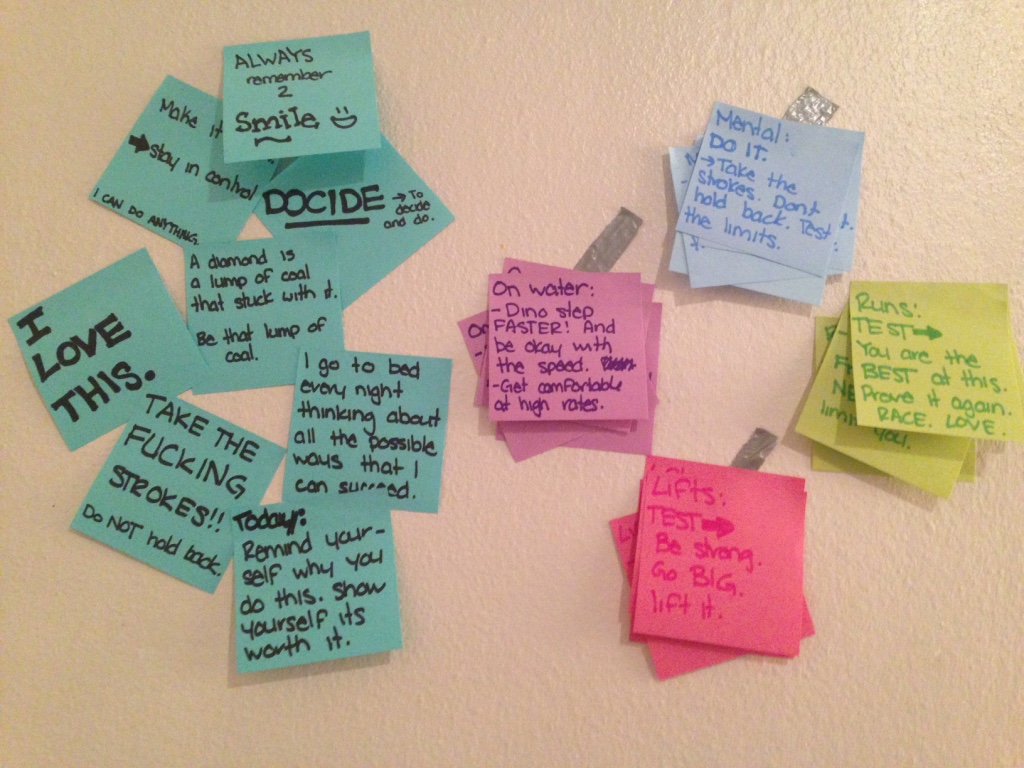 ALWAYS
remember
2
Smile
Make it
stay in control
I CAN DO ANYTHING.
DOCIDE → To
decide
and do.
A diamond is
a lump of coal
that stuck with it.
Be that lump of
coal.
I
LOVE
THIS.
I go to bed
every night
thinking about
all the possible
ways that I
can succeed.
TAKE THE
FUCKING
STROKES!!
DO NOT hold back.
Today:
Remind your-
self why you
do this. Show
yourself its
worth it.
On water:
- Dino step
FASTER! And
be okay with
the speed.
- Get comfortable
at high rates.
Mental:
DO IT.
→ Take the
strokes. Don't
hold back. Test
the limits.
Runs:
TEST →
You are the
BEST at this.
Prove it again.
RACE. LOVE.
you.
Lifts:
TEST →
Be strong.
Go BIG.
lift it.